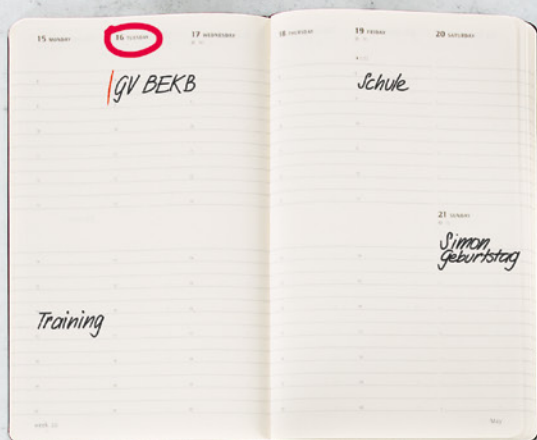 15 MONDAY
16 TUESDAY
17 WEDNESDAY
18 THURSDAY
19 FRIDAY
20 SATURDAY
GV BEKB
Schule
21 SUNDAY
Simon
Geburtstag
Training
May